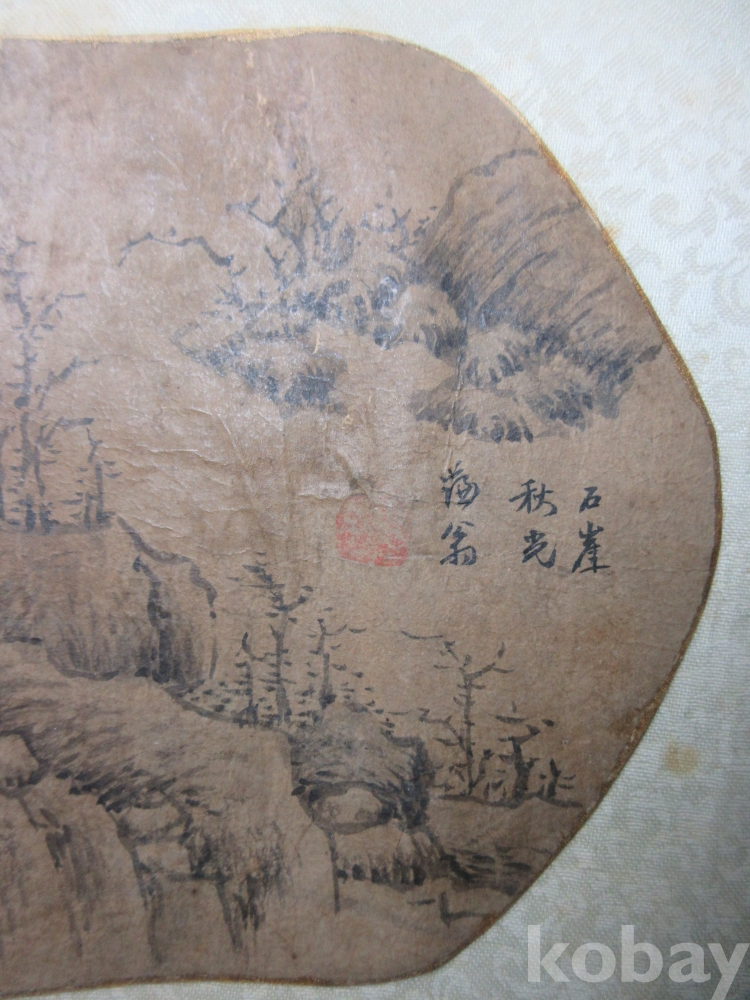 石峯
秋光
蕩翁
kobay